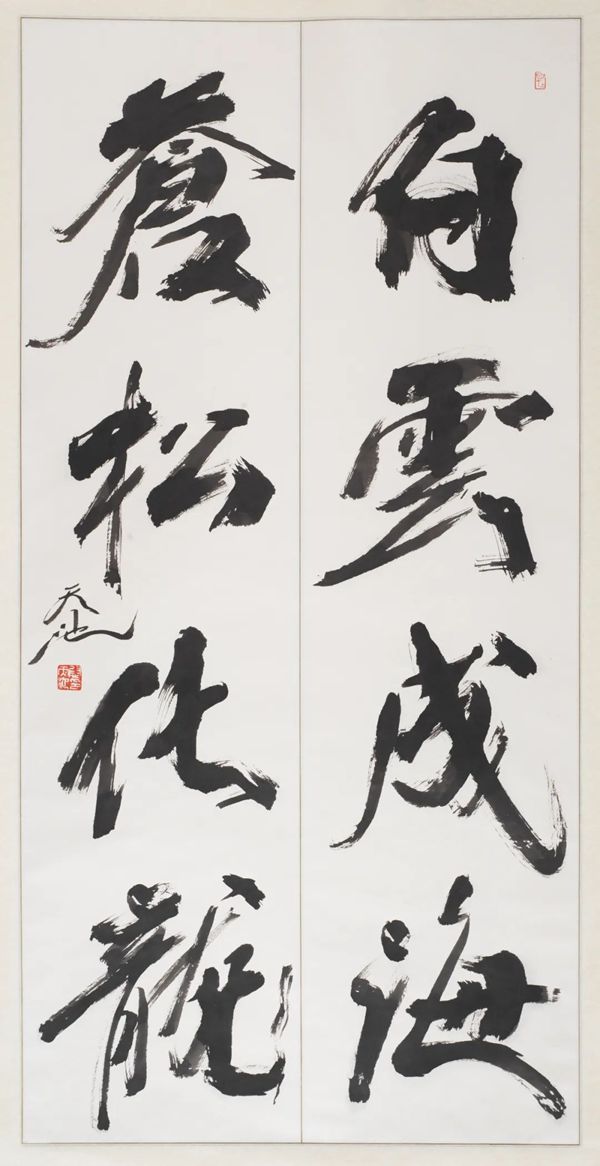 白雲成海
蒼松化龍
天池